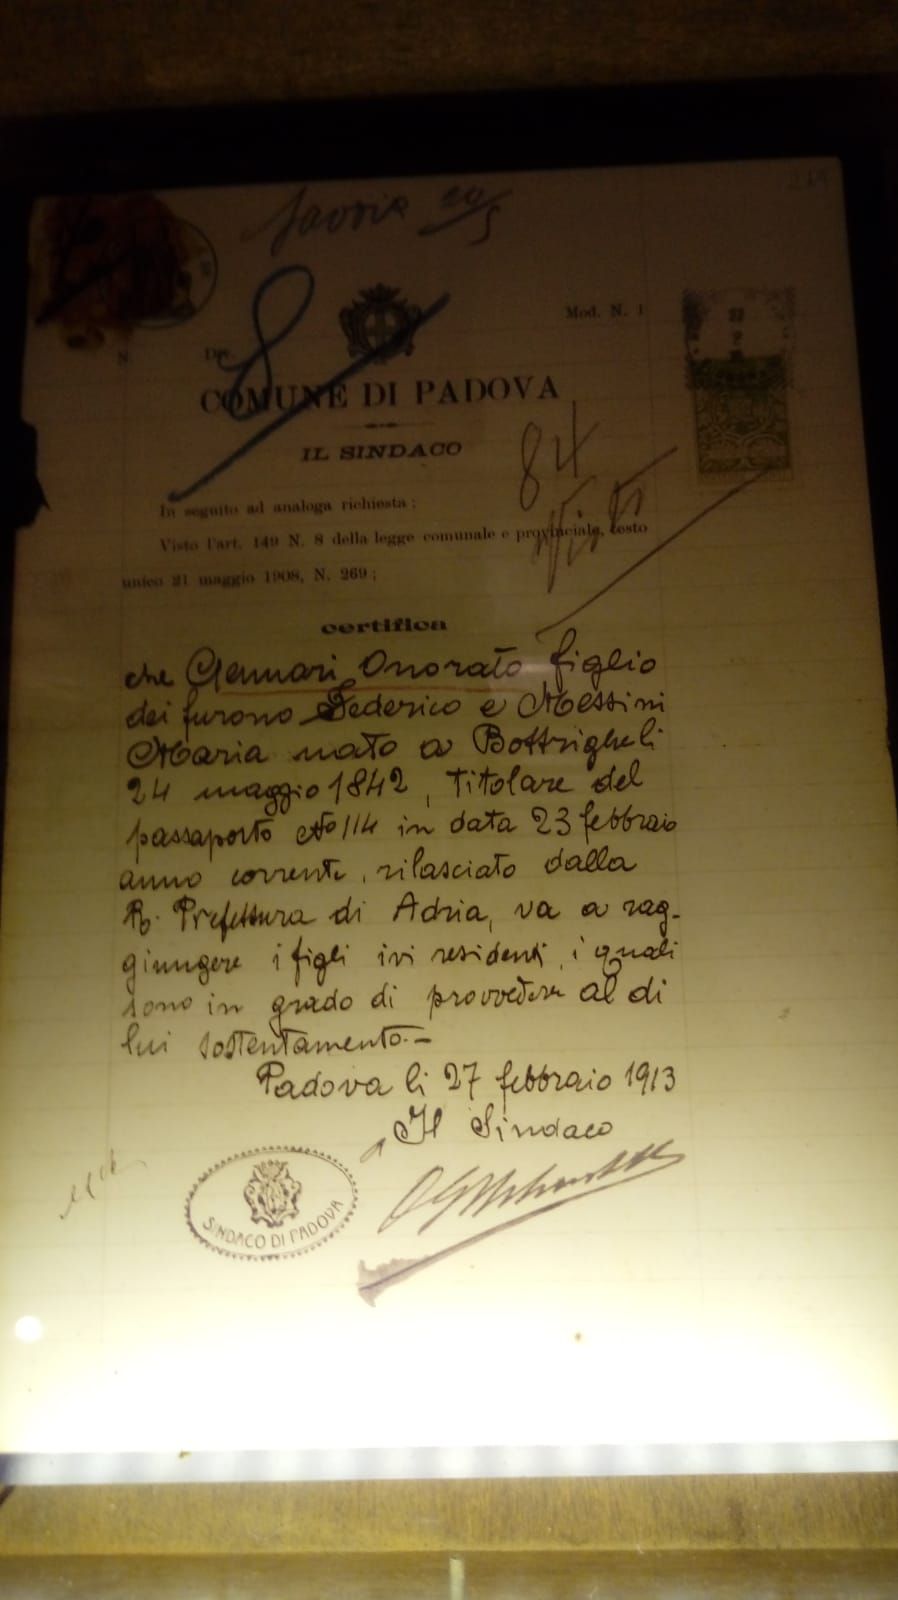 Savoia 20/5
8
Mod. N. 1
N. Div.
COMUNE DI PADOVA
IL SINDACO
84
In seguito ad analoga richiesta;
Visto l'art. 149 N. 8 della legge comunale e provinciale, testo
unico 21 maggio 1908, N. 269;
certifica
che Gennari Onorato figlio
dei furono Federico e Messini
Maria nato a Bottrigheli
24 maggio 1842, titolare del
passaporto No 114 in data 23 febbraio
anno corrente, rilasciato dalla
R. Prefettura di Adria, va a rag-
giungere i figli ivi residenti, i quali
sono in grado di provvedere al di
lui sostentamento.-
Padova li 27 febbraio 1913
Il Sindaco
SINDACO DI PADOVA